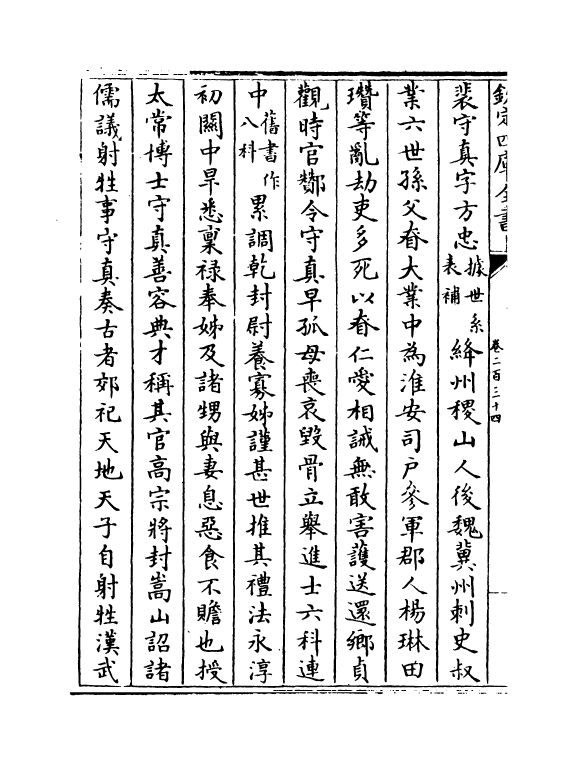 欽定四庫全書
卷二百三十四
裴守真字方忠據世系表補絳州稷山人後魏冀州刺史叔
業六世孫父眘大業中為淮安司戶參軍郡人楊琳田
瓚等亂劫吏多死以眘仁愛相誡無敢害護送還鄉貞
觀時官酇令守真早孤母喪哀毀骨立舉進士六科連
中舊書作八科累調乾封尉養寡姊謹甚世推其禮法永淳
初關中旱悉稟祿奉姊及諸甥與妻息惡食不贍也授
太常博士守真善容典才稱其官高宗將封嵩山詔諸
儒議射牲事守真奏古者郊祀天地天子自射牲漢武